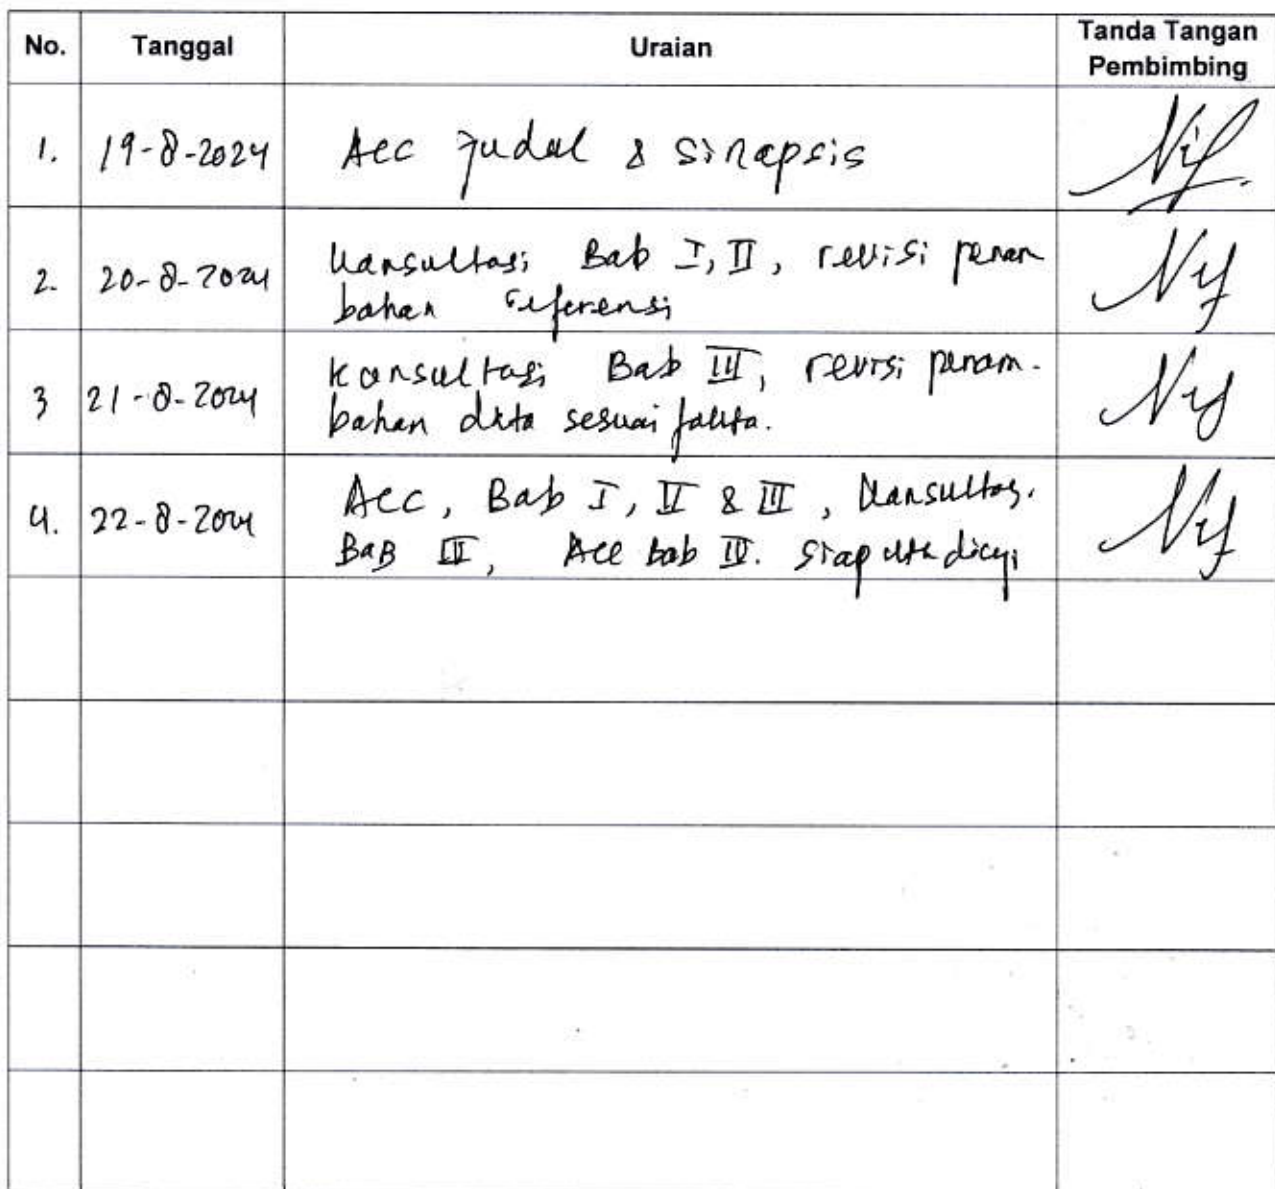 No. Tanggal Uraian Tanda Tangan Pembimbing
1. 19-8-2024 Acc judul & sinopsis
2. 20-8-2024 Konsultasi Bab I, II, revisi penam
bahan referensi
3 21-8-2024 Konsultasi Bab III, revisi penam-
bahan data sesuai fakta.
4. 22-8-2024 Acc, Bab I, II & III, Konsultasi
BaB, Acc bab IV. siap diuji